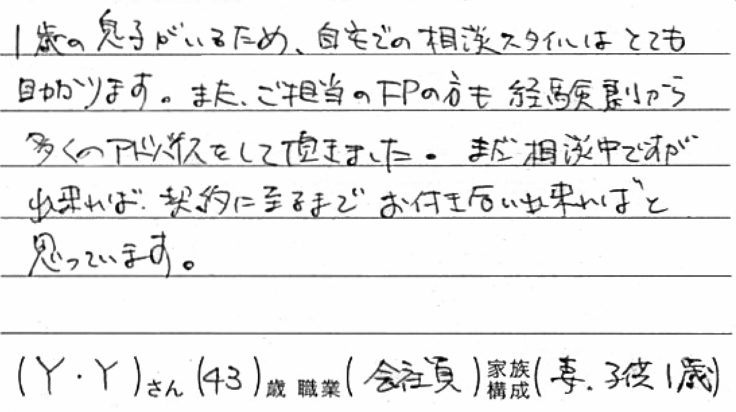 1歳の息子がいるため、自宅での相談スタイルはとても
助かります。また、ご担当のFPの方も経験豊かから
多くのアドバイスをして頂きました。まだ相談中ですが
出来れば、契約に至るまでお付き合い出来ればと
思っています。
(Y・Y)さん(43)歳 職業(会社員)家族構成(妻、子供1歳)